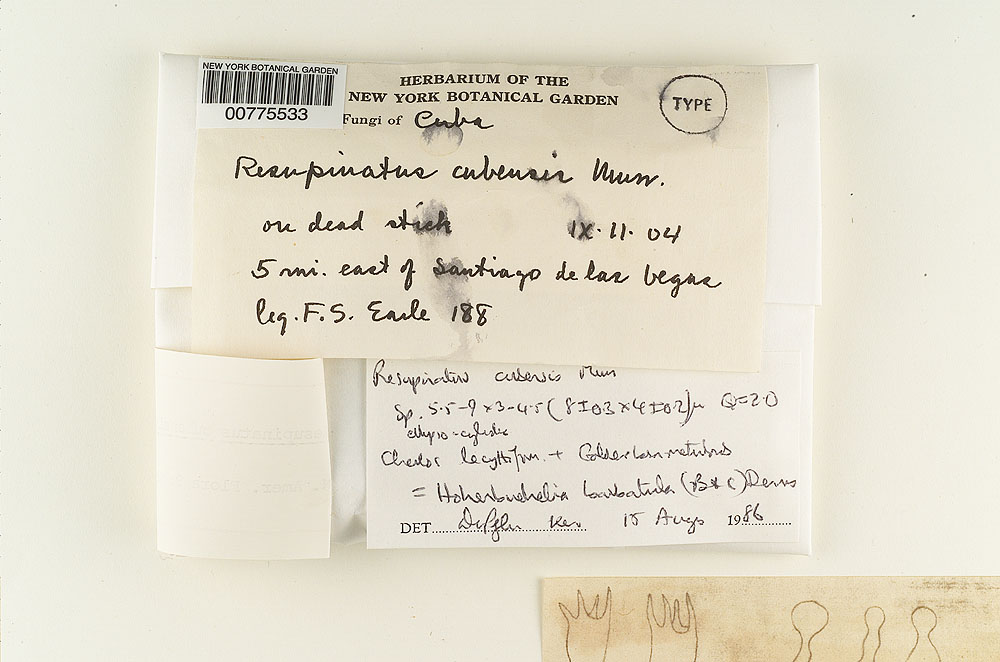 NEW YORK BOTANICAL GARDEN
00775533
HERBARIUM OF THE
NEW YORK BOTANICAL GARDEN
TYPE
Fungi of Cuba
Resupinatus cubensis Murr.
on dead stick IX·11·04
5 mi. east of Santiago de las Vegas
leg. F.S. Earle 188
Resupinatus cubensis Murr
Sp. 5.5-9 x 3-4.5 (8±0.3 x 4±0.2)µ Q=2.0
ellipso-cylindric
Cheilos lecythiform. +
= Hohenbuehelia barbatula (B & C) Dennis
DET. 15 Aug 1986